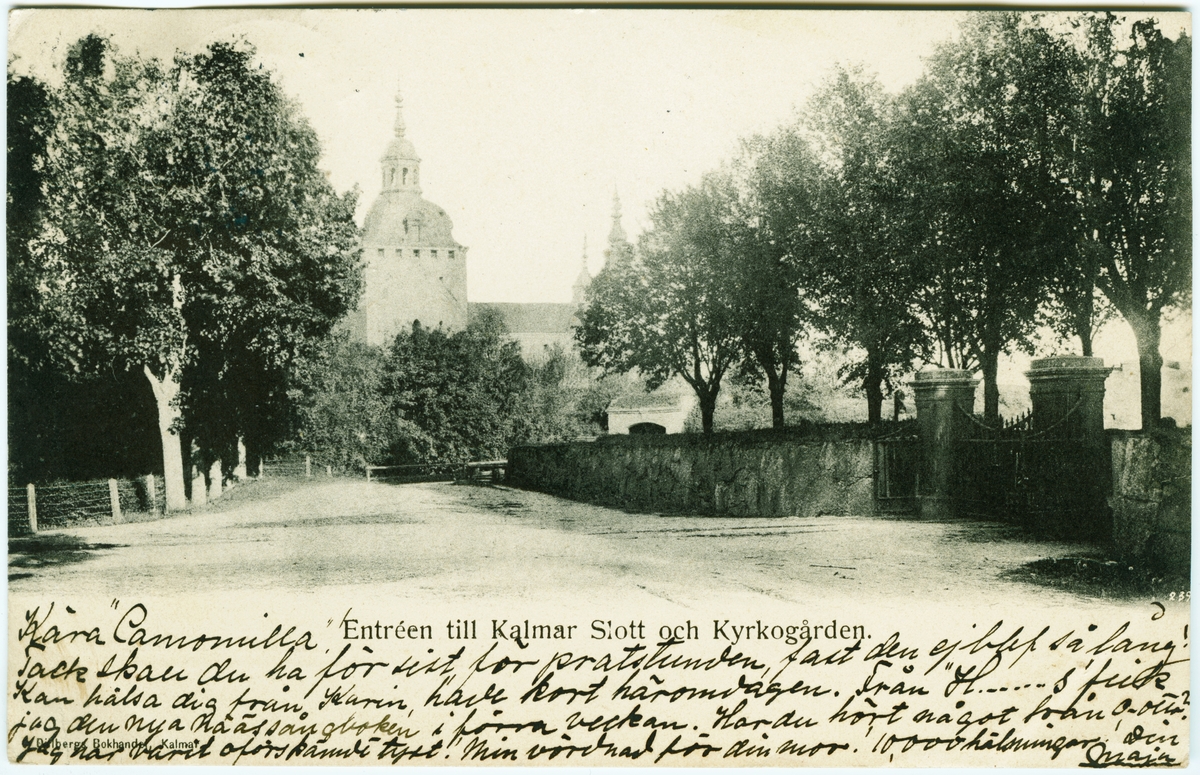 Entréen till Kalmar Slott och Kyrkogården.
Kära "Camomilla"!
Tack skall du ha för sist, för pratstunden, fast den ej blef så lång!
Kan hälsa dig från Karin, hade kort häromdagen. Från H......s fick
jag den nya nääs sångboken i förra veckan. Har du hört något från
Jag har varit oförskämdt tyst! Min vördnad för din mor! 10,000 hälsningar! Din
Maja
Dalbergs Bokhandel, Kalmar